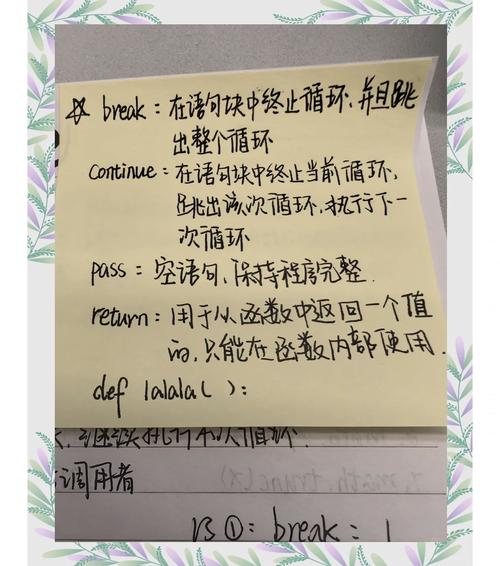 ☆ break：在语句块中终止循环，并且跳
出整个循环
continue：在语句块中终止当前循环，
跳出该次循环，执行下一
次循环
pass：空语句，保持程序完整．
return：用于从函数中返回一个值
的，只能在函数内部使用．
def lalala( )：
继续执行本次循环．
调用者
7. math.trunc(x)
①：break：